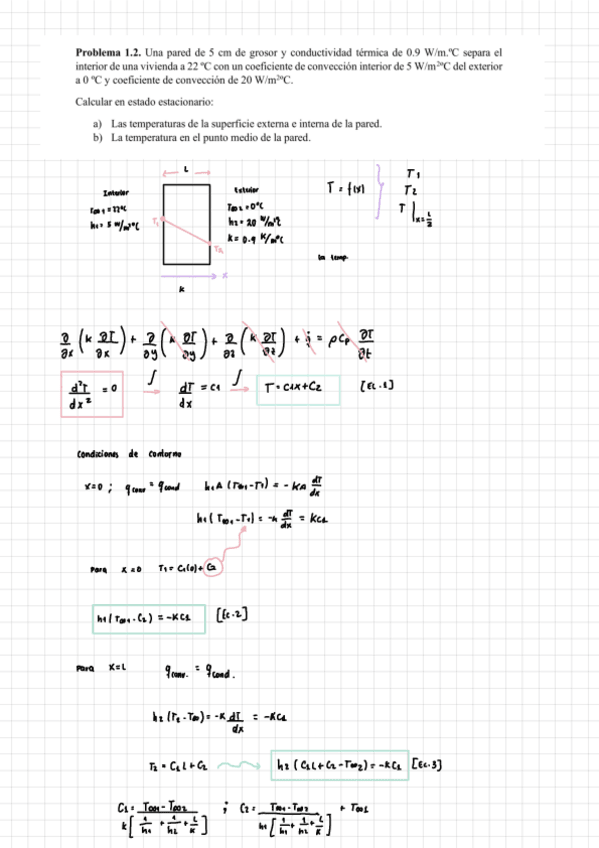 Problema 1.2. Una pared de 5 cm de grosor y conductividad térmica de 0.9 W/m.ºC separa el
interior de una vivienda a 22 ºC con un coeficiente de convección interior de 5 W/m²ºC del exterior
a 0 ºC y coeficiente de convección de 20 W/m²ºC.
Calcular en estado estacionario:
a) Las temperaturas de la superficie externa e interna de la pared.
b) La temperatura en el punto medio de la pared.
L
Interior
T∞1 = 22ºC
h1 = 5 W/m²ºC
T1
T2
Exterior
T∞2 = 0ºC
h2 = 20 W/m²ºC
k = 0.9 K/mºC
x
k
T = f(x) } T1
T2
T |x=L/2
la temp
∂/∂x (k ∂T/∂x) + ∂/∂y (k ∂T/∂y) + ∂/∂z (k ∂T/∂z) + q̇ = ρCp ∂T/∂t
d²T/dx² = 0 ∫ dT/dx = C1 ∫ T = C1x + C2 [Ec.1]
Condiciones de contorno
x=0 ; qconv = qcond h1A (T∞1 - T1) = -KA dT/dx
h1 (T∞1 - T1) = -k dT/dx = KC1
Para x=0 T1 = C1(0) + C2
h1 (T∞1 - C2) = -KC1 [Ec.2]
Para X=L qconv. = qcond.
h2 (T2 - T∞) = -K dT/dx = -KC1
T2 = C1L + C2 h2 (C1L + C2 - T∞2) = -KC1 [Ec.3]
C1 = T∞1 - T∞2 / k[1/h1 + 1/h2 + L/K] ; C2 = T∞1 - T∞2 / h1[1/h1 + 1/h2 + L/K] + T∞1